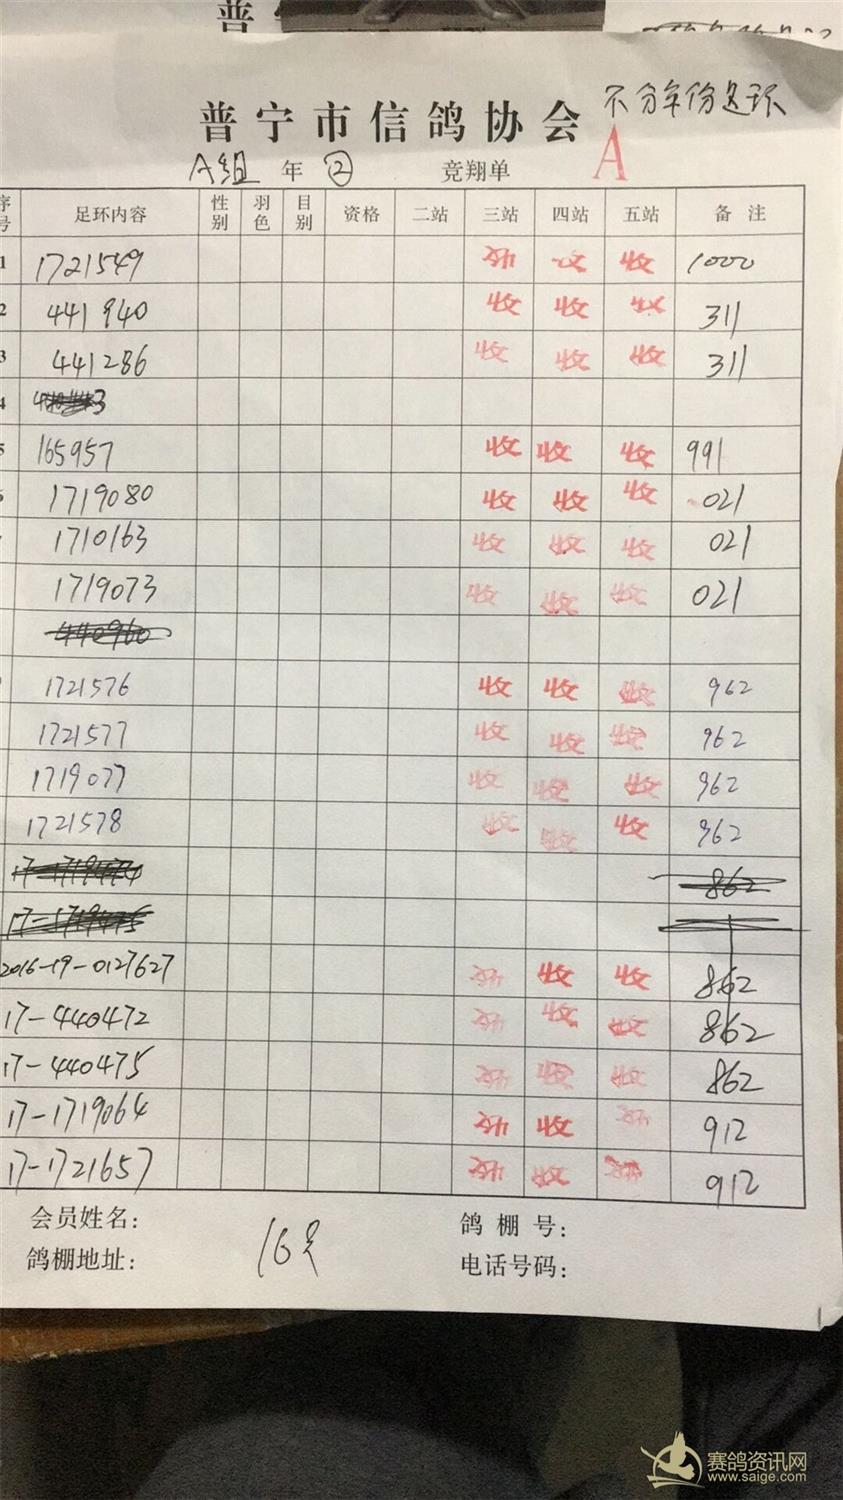 普
普宁市信鸽协会 不分年份足环
A组 年 ② 竞翔单 A
序号 足环内容 性别 羽色 目别 资格 二站 三站 四站 五站 备注
1 1721549 收 收 收 1000
2 441940 收 收 收 311
3 441286 收 收 收 311
4
5 165957 收 收 收 991
6 1719080 收 收 收 021
1710163 收 收 收 021
1719073 收 收 收 021
440960
1721576 收 收 收 962
1721577 收 收 收 962
1719077 收 收 收 962
1721578 收 收 收 962
17-1719474 862
17-1719475
2016-19-0127627 收 收 收 862
17-440472 收 收 收 862
17-440475 收 收 收 862
17-1719064 收 收 收 912
17-1721657 收 收 收 912
会员姓名： 鸽棚号：
鸽棚地址： 16只 电话号码：
赛鸽资讯网
www.saige.com